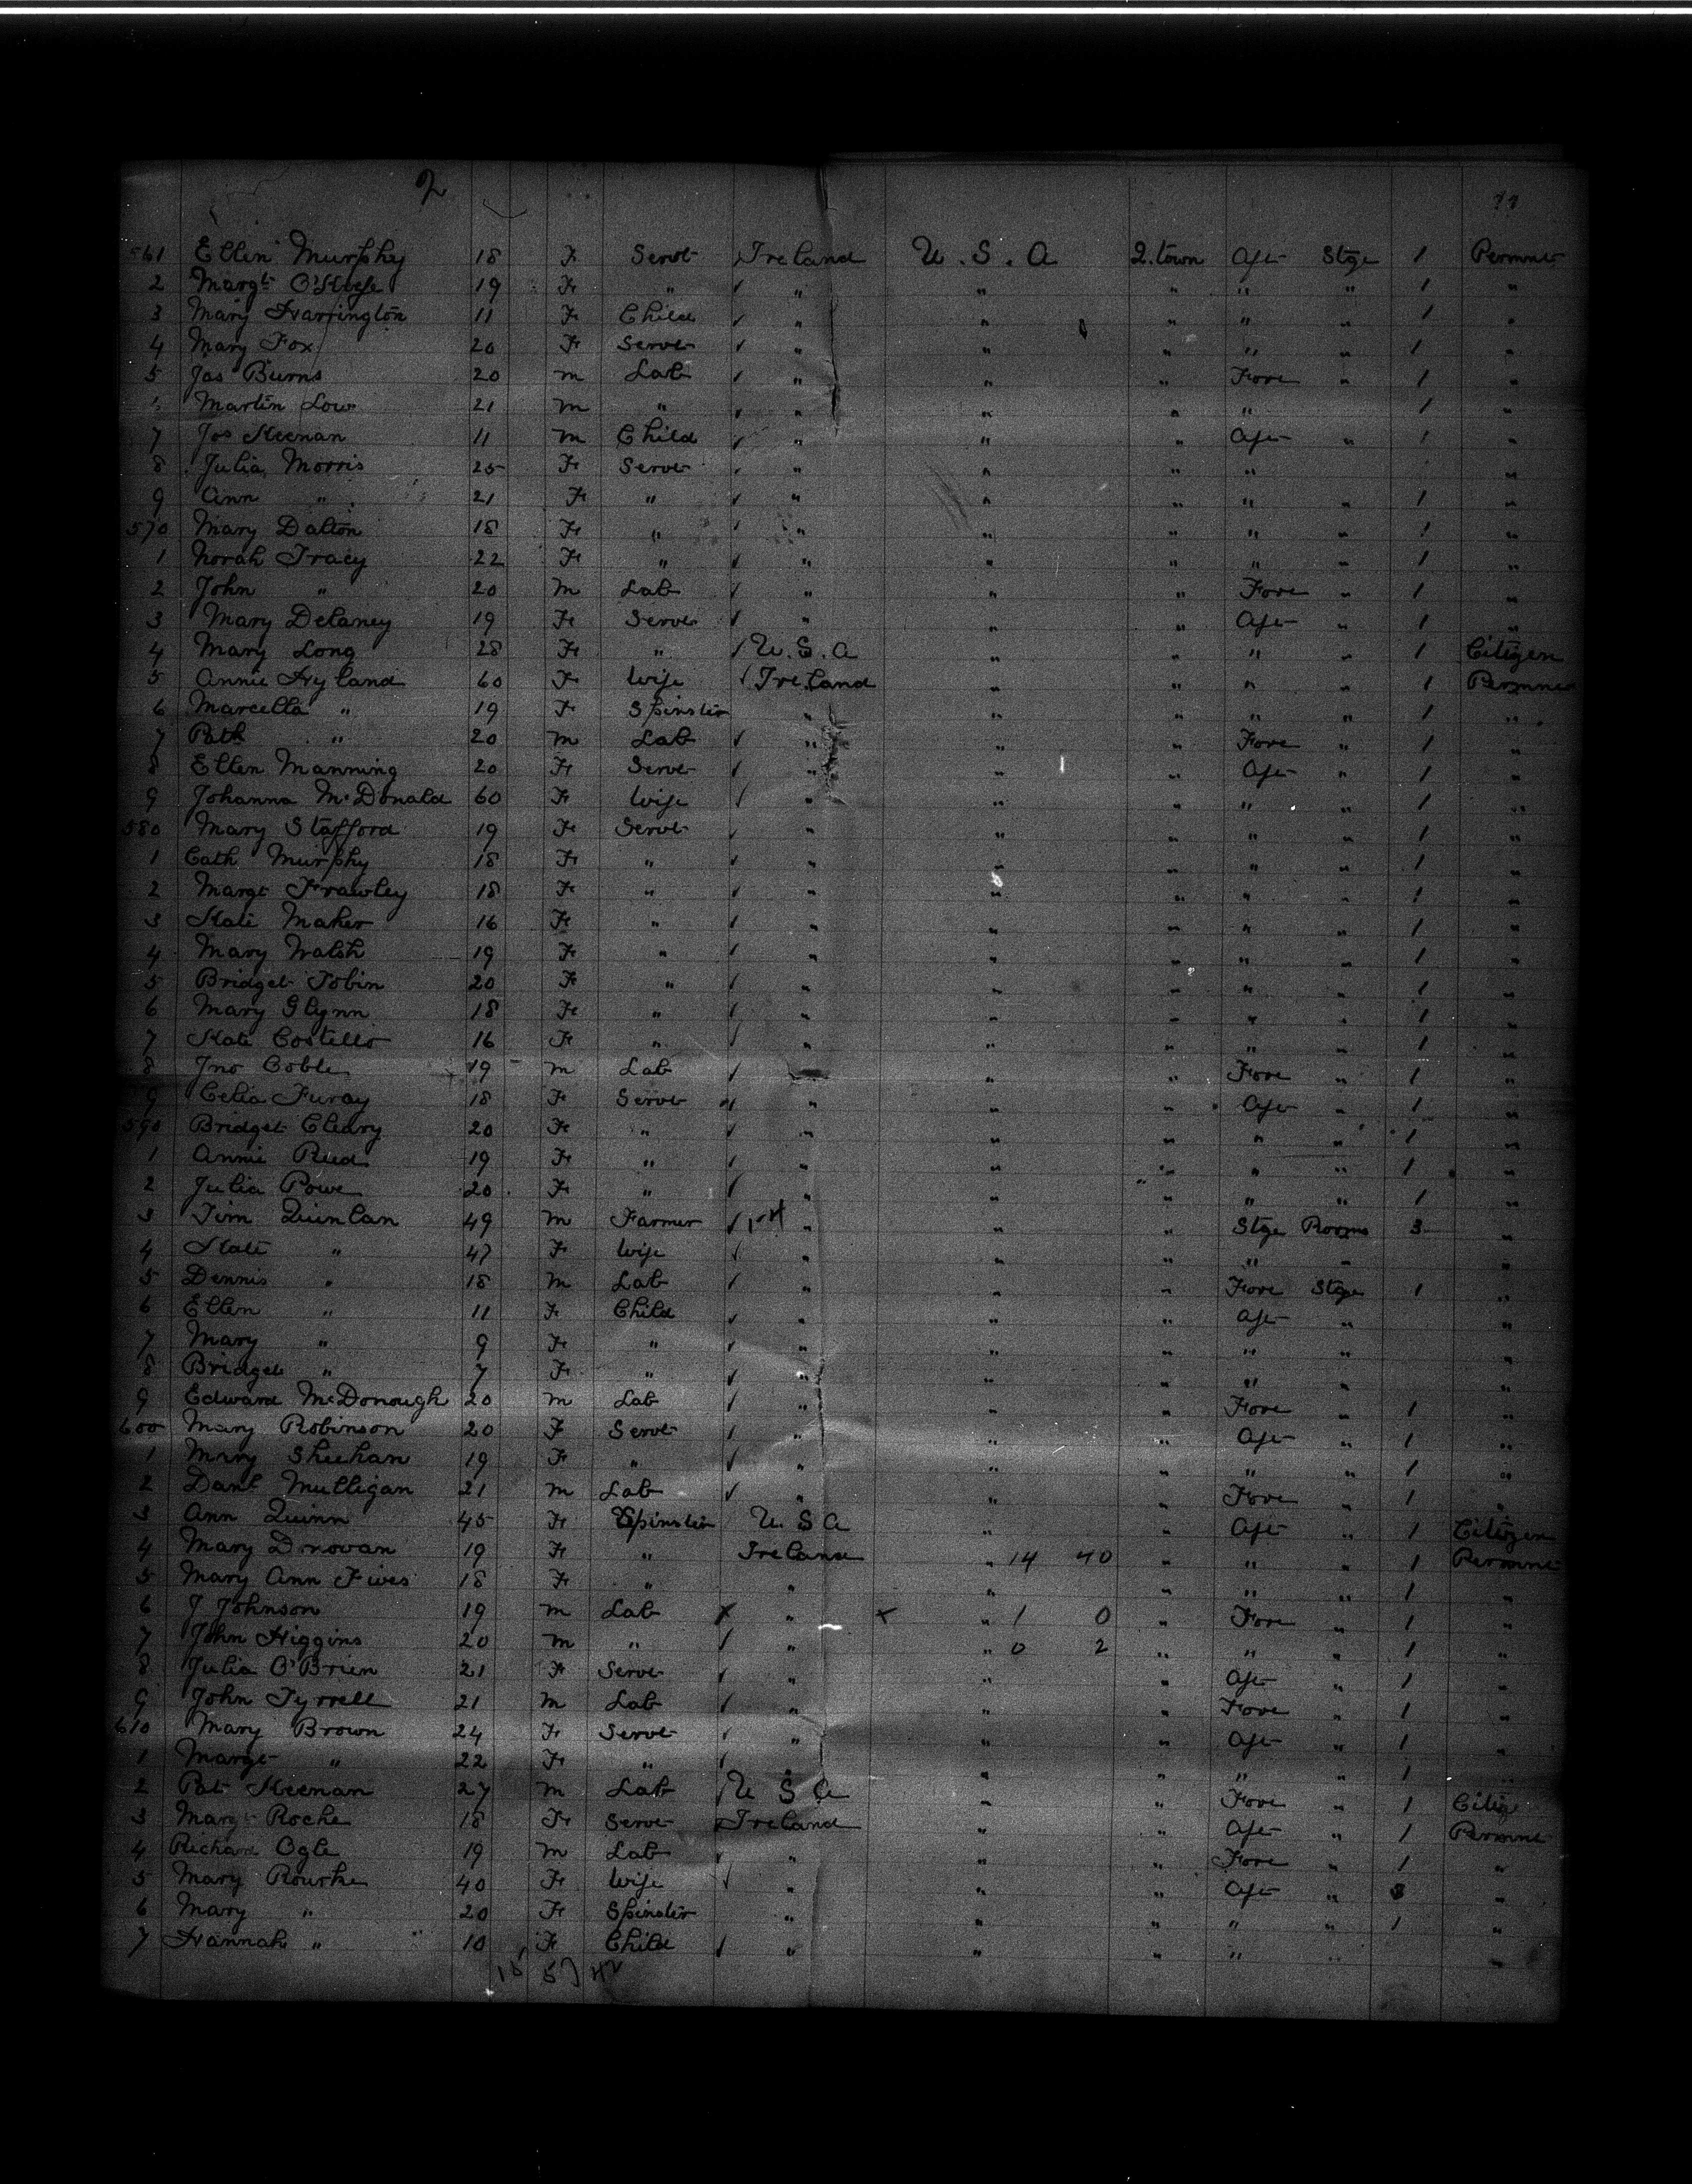 2
561 Ellen Murphy 18 F Servt Ireland U.S.A Q.town Aft Stge 1 Permnt
2 Margt O'Keefe 19 F " ✓ " " " " " 1 "
3 Mary Harrington 11 F Child ✓ " " " " " 1 "
4 Mary Fox 20 F Servt ✓ " " " " " 1 "
5 Jas Burns 20 m Lab ✓ " " " Fore " 1 "
Martin Low 21 m " ✓ " " " " 1 "
7 Jos Keenan 11 m Child ✓ " " " Aft " 1 "
8 Julia Morris 25 F Servt ✓ " " " " "
9 Ann " 21 F " ✓ " " " " " 1 "
570 Mary Dalton 18 F " ✓ " " " " " 1 "
1 Norah Tracy 22 F " ✓ " " " " " 1 "
2 John " 20 m Lab ✓ " " " Fore " 1 "
3 Mary Delaney 19 F Servt ✓ " " " Aft " 1 "
4 Mary Long 28 F " ✓ U.S.A " " " " 1 Citizen
5 Annie Hyland 60 F Wife ✓ Ireland " " " " 1 Permnt
6 Marcella " 19 F Spinster " " " " " 1 "
7 Patk " 20 m Lab ✓ " " " Fore " 1 "
8 Ellen Manning 20 F Servt ✓ " " " Aft " 1 "
9 Johanna McDonald 60 F Wife ✓ " " " " " 1 "
580 Mary Stafford 19 F Servt ✓ " " " " " 1 "
1 Cath Murphy 18 F " ✓ " " " " " 1 "
2 Margt Frawley 18 F " ✓ " " " " " 1 "
3 Kate Maher 16 F " ✓ " " " " " 1 "
4 Mary Walsh 19 F " ✓ " " " " " 1 "
5 Bridget Tobin 20 F " ✓ " " " " " 1 "
6 Mary Glynn 18 F " ✓ " " " " " 1 "
7 Kate Costello 16 F " ✓ " " " " " 1 "
8 Jno Coble 19 m Lab ✓ " " Fore " 1 "
9 Celia Furay 18 F Servt ✓ " " " Aft " 1 "
590 Bridget Cleary 20 F " ✓ " " " " " 1 "
1 Annie Reed 19 F " ✓ " " " " " 1 "
2 Julia Powe 20 F " ✓ " " " " " 1 "
3 Tim Quinlan 49 m Farmer ✓ " " " Stge Rooms 3 "
4 Kate " 47 F Wife ✓ " " " " " "
5 Dennis " 18 m Lab ✓ " " " Fore Stge 1 "
6 Ellen " 11 F Child ✓ " " " Aft " "
7 Mary " 9 F " ✓ " " " " " "
8 Bridget " 7 F " ✓ " " " " "
9 Edward McDonough 20 m Lab ✓ " " " Fore " 1 "
600 Mary Robinson 20 F Servt ✓ " " " Aft " 1 "
1 Mary Sheehan 19 F " ✓ " " " " " 1 "
2 Danl Mulligan 21 m Lab ✓ " " " Fore " 1 "
3 Ann Quinn 45 F Spinster U.S.A " " Aft " 1 Citizen
4 Mary Donovan 19 F " Ireland " 14 40 " " " 1 Permnt
5 Mary Ann Fives 18 F " " " " " " 1 "
6 J Johnson 19 m Lab x " x " 1 0 " Fore " 1 "
7 John Higgins 20 m " ✓ " " 0 2 " " " 1 "
8 Julia O'Brien 21 F Servt ✓ " " " Aft " 1 "
9 John Tyrrell 21 m Lab ✓ " " " Fore " 1 "
610 Mary Brown 24 F Servt ✓ " " " Aft " 1 "
1 Margt " 22 F " ✓ " " " " 1 "
2 Pat Keenan 27 m Lab ✓ U S A " " Fore " 1 Citiz
3 Margt Roche 18 F Servt Ireland " " Aft " 1 Permnt
4 Richard Ogle 19 m Lab ✓ " " " Fore " 1 "
5 Mary Rourke 40 F Wife ✓ " " " Aft " "
6 Mary " 20 F Spinster " " " " " 1 "
7 Hannah " 10 F Child ✓ " " " " " "